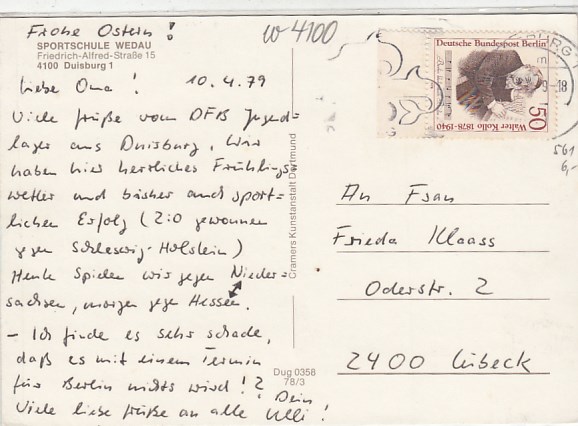 Frohe Ostern!
w 4100
SPORTSCHULE WEDAU
Friedrich-Alfred-Straße 15
4100 Duisburg 1
Liebe Oma! 10.4.79
Viele Grüße vom DFB Jugend-
lager aus Duisburg. Wir
haben hier herrliches Frühlings=
wetter und bisher auch sport-
lichen Erfolg (2:0 gewonnen
gegen Schleswig-Holstein)
Heute Spielen wir gegen Nieder=
sachsen, morgen gegen Hessen.
- Ich finde es sehr schade,
daß es mit einem Termin
für Berlin nichts wird!?
Viele liebe Grüße an alle Dein
Ulli!
Cramers Kunstanstalt Dortmund
Dug 0358
78/3
Deutsche Bundespost Berlin
50
Walter Kollo 1878-1940
BURG
9-18
561
6,-
An Frau
Frieda Klaass
Oderstr. 2
2400 Lübeck